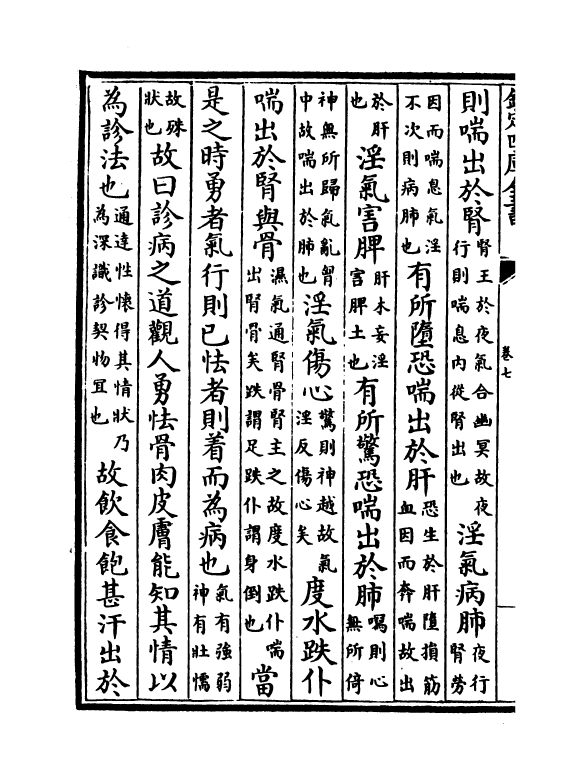 卷七
則喘出於腎腎王於夜氣合幽冥故夜行則喘息内從腎出也淫氣病肺夜行腎勞
因而喘息氣淫不次則病肺也有所墮恐喘出於肝恐生於肝墮損筋血因而奔喘故出
於肝也淫氣害脾肝木妄淫害脾土也有所驚恐喘出於肺喝則心無所倚
神無所歸氣亂胷中故喘出於肺也淫氣傷心驚則神越故氣淫反傷心矣度水跌仆
喘出於腎與骨濕氣通腎骨腎主之故度水跌仆喘出腎骨矣跌謂足跌仆謂身倒也當
是之時勇者氣行則已怯者則着而為病也氣有強弱神有壯懦
故殊狀也故曰診病之道觀人勇怯骨肉皮膚能知其情以
為診法也通達性懷得其情狀乃為深識診契物冝也故飲食飽甚汗出於